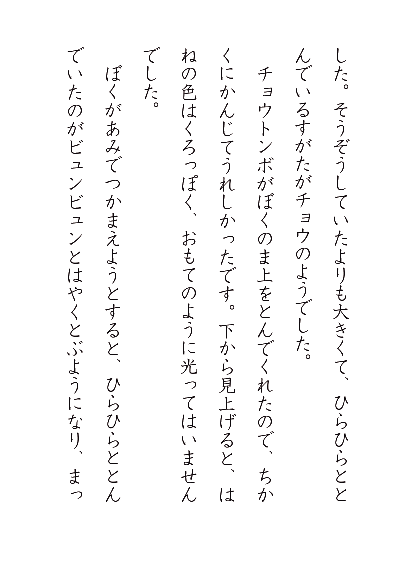 した。そうぞうしていたよりも大きくて、ひらひらとと
んでいるすがたがチョウのようでした。
　チョウトンボがぼくのま上をとんでくれたので、ちか
くにかんじてうれしかったです。下から見上げると、は
ねの色はくろっぽく、おもてのように光ってはいません
でした。
　ぼくがあみでつかまえようとすると、ひらひらととん
でいたのがビュンビュンとはやくとぶようになり、まっ